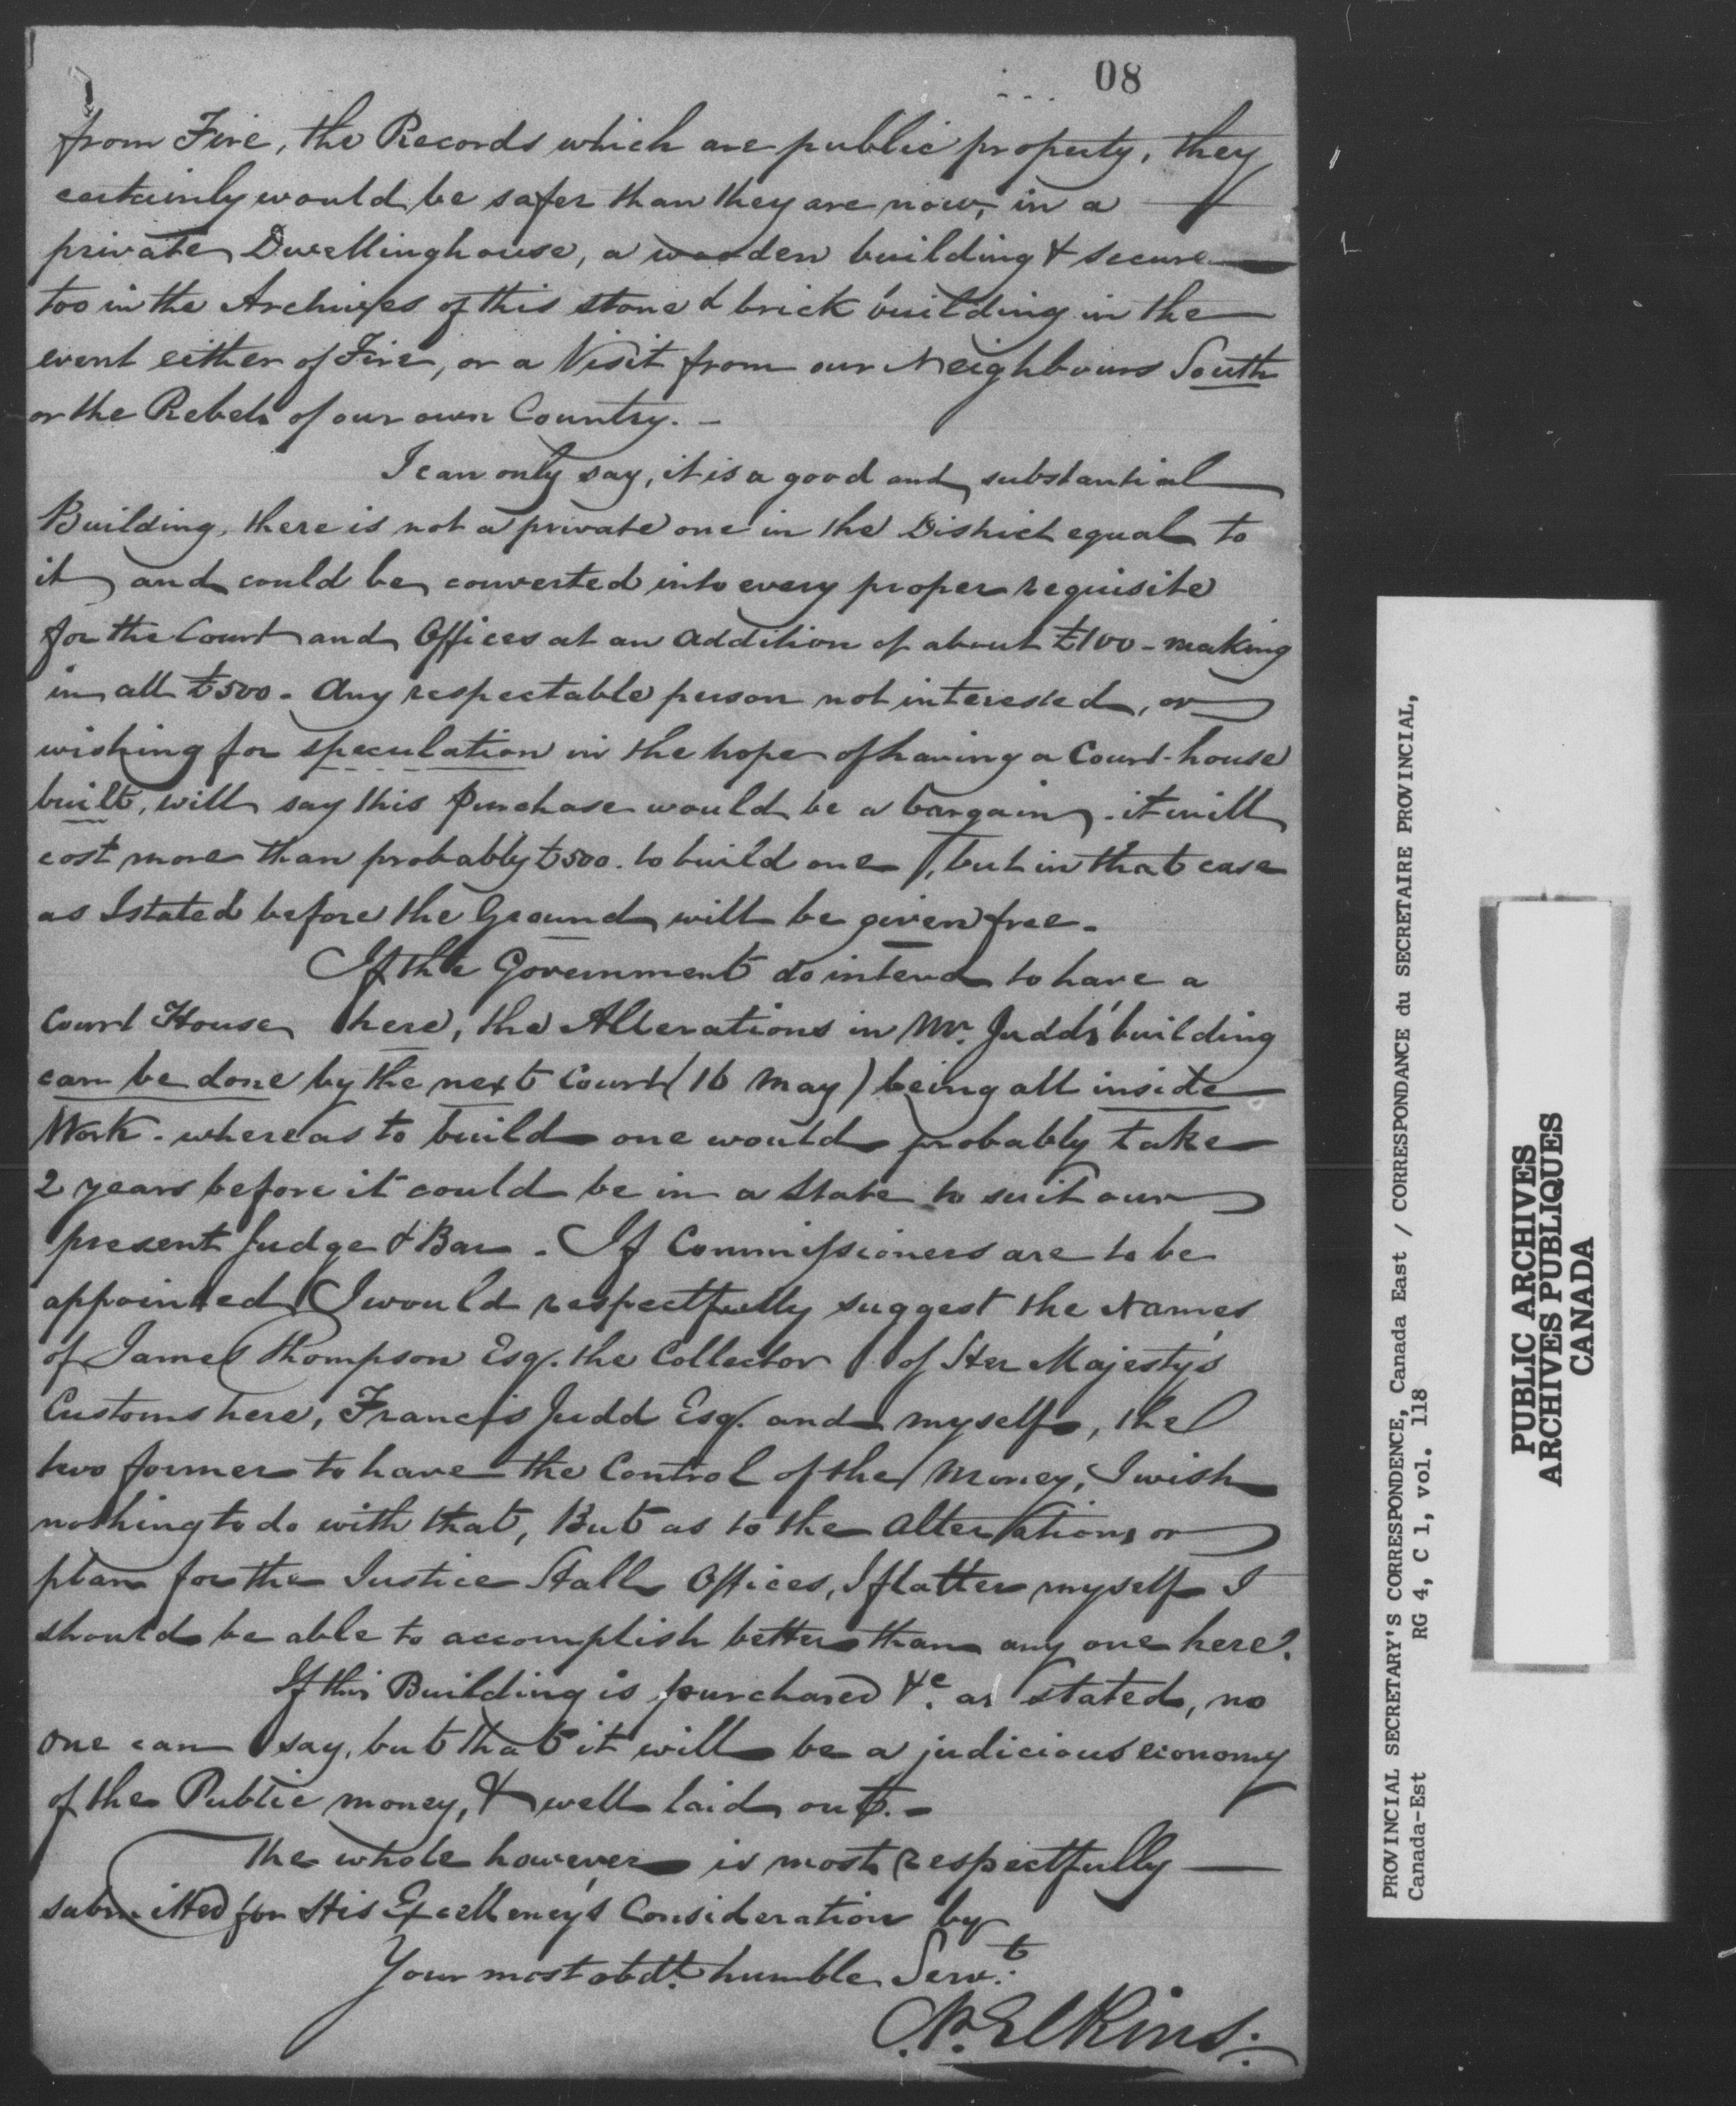 08
from Fire, the Records which are public property, they
certainly would be safer than they are now, in a
private Dwellinghouse, a wooden building & secure
too in the Archives of this stone & brick building in the
event either of Fire, or a Visit from our Neighbours South
or the Rebels of our own Country. -
I can only say, it is a good and substantial
Building, there is not a private one in the District equal to
it and could be converted into every proper requisite
for the Court and Offices at an addition of about £100 - making
in all £500 - Any respectable person not interested, or
wishing for speculation in the hope of having a Court-house
built, will say this Purchase would be a bargain. it will
cost more than probably £500. to build one, but in that case
as I stated before the Ground will be given free.
If the Government do intend to have a
Court House here, the Alterations in Mr. Judds' building
can be done by the next Court (16 May) being all inside
Work. whereas to build one would probably take
2 years before it could be in a State to suit our
present Judge & Bar. If Commissioners are to be
appointed I would respectfully suggest the Names
of James Thompson Esq. the Collector of Her Majesty's
Customs here, Francis Judd Esq. and myself, the
two former to have the Control of the Money, I wish
nothing to do with that, But as to the alterations or
plan for the Justice Hall Offices, I flatter myself I
should be able to accomplish better than any one here.
If this Building is purchased &c. as stated, no
one can say, but that it will be a judicious economy
of the Public money, & well laid out. -
The whole however is most respectfully
submitted for His Excellency's Consideration by
Your most obdt. humble Servt.
Elkins.
PROVINCIAL SECRETARY'S CORRESPONDENCE, Canada East / CORRESPONDANCE du SECRETAIRE PROVINCIAL,
Canada-Est RG 4, C 1, vol. 118
PUBLIC ARCHIVES
ARCHIVES PUBLIQUES
CANADA